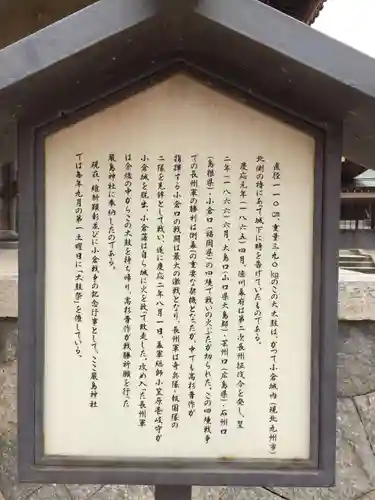 直径一一〇㎝、重量三九〇㎏のこの大太鼓は、かつて小倉城内(現北九州市)
北側の櫓にあて城下に時を告げていたものである。
慶応元年(一八六五)四月、徳川幕府は第二次長州征伐令を発し、翌
二年(一八六六)六月、大島口(山口県大島郡)・芸州口(広島県)・石州口
(島根県)・小倉口(福岡県)の四境で戦いの火ぶたが切られた。この四境戦争
での長州軍の勝利は倒幕の重要な契機となったが、中でも高杉晋作が
指揮する小倉口の戦闘は最大の激戦となり、長州軍は奇兵隊・報国隊の
二隊を先鋒として戦い、遂に慶応二年八月一日、幕軍総師小笠原壱岐守が
小倉城を脱出、小倉藩は自ら城に火を放って敗走した。攻め入った長州軍
は余燼の中からこの太鼓を持ち帰り、高杉晋作が戦勝祈願を行った
厳島神社に奉納したのである。
現在、維新顕彰並びに小倉戦争の記念行事として、ここ厳島神社
では毎年九月の第一土曜日に「太鼓祭」を催している。